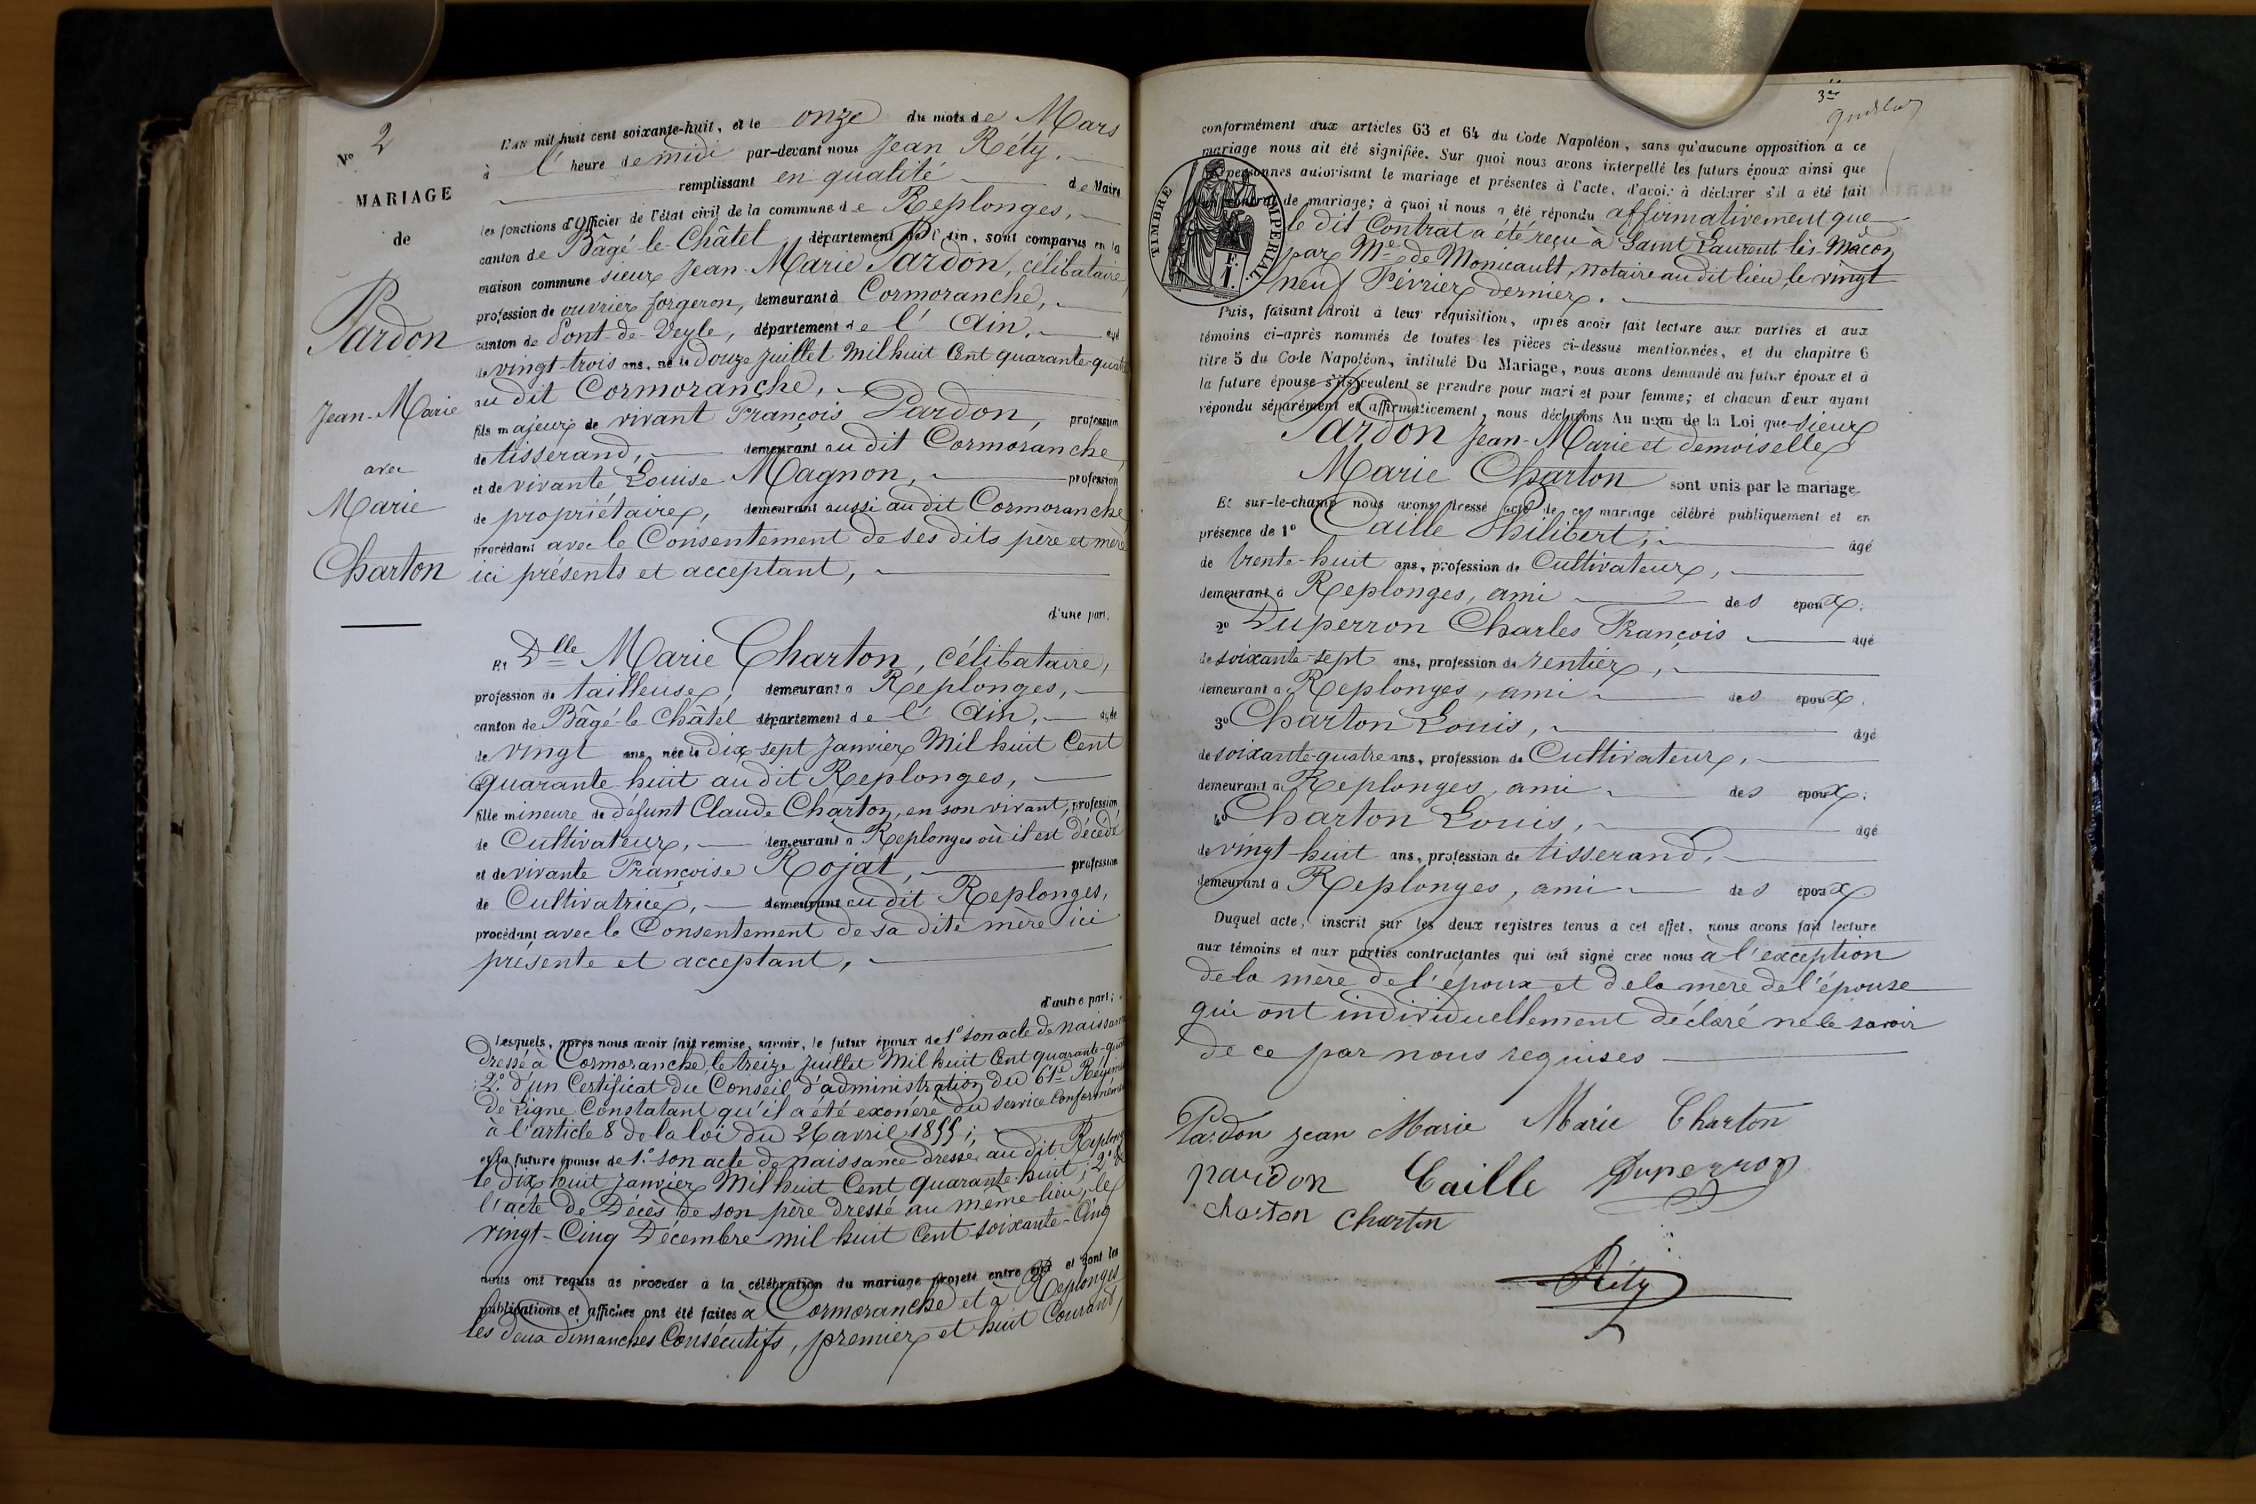 N° 2
MARIAGE
de
Pardon
Jean-Marie
avec
Marie
Charton
L'an mil huit cent soixante-huit, et le onze du mois de Mars
à l'heure de midi par-devant nous Jean Réty.
remplissant en qualité de Maire
les fonctions d'Officier de l'état civil de la commune de Replonges,
canton de Bâgé-le-Châtel, département de l'Ain, sont comparus en la
maison commune sieur Jean-Marie Pardon, célibataire,
profession de ouvrier forgeron, demeurant à Cormoranche,
canton de Pont-de-Veyle, département de l'Ain, âgé
de vingt-trois ans, né le Douze Juillet Mil huit Cent quarante-quatre
au dit Cormoranche,
fils majeur de vivant François Pardon, profession
de tisserand, demeurant au dit Cormoranche
et de vivante Louise Magnon, profession
de propriétaire, demeurant aussi au dit Cormoranche
procédant avec le Consentement de ses dits père et mère
ici présents et acceptant,
d'une part,
Et Dlle Marie Charton, célibataire,
profession de tailleuse, demeurant à Replonges,
canton de Bâgé-le-Châtel département de l'Ain, âgée
de vingt ans, née le Dix-sept Janvier Mil huit Cent
quarante-huit au dit Replonges,
fille mineure de défunt Claude Charton, en son vivant, profession
de Cultivateur, demeurant à Replonges où il est décédé
et de vivante Françoise Rojat, profession
de Cultivatrice, demeurant au dit Replonges,
procédant avec le Consentement de sa dite mère ici
présente et acceptant,
d'autre part;
Lesquels, après nous avoir fait remise, savoir, le futur époux de 1° son acte de naissance
dressé à Cormoranche, le treize Juillet Mil huit Cent quarante-quatre
2° d'un Certificat du Conseil d'administration du 61e Régiment
De Ligne Constatant qu'il a été exonéré du service Conformément
à l'article 8 de la loi du 26 avril 1855;
et la future épouse de 1° son acte de naissance dressé au dit Replonges
le dix-huit Janvier Mil huit Cent quarante-huit; 2° de
l'acte de Décès de son père dressé au même lieu, le
vingt-Cinq Décembre mil huit Cent soixante-Cinq
nous ont requis de procéder à la célébration du mariage projeté entre eux et dont les
publications et affiches ont été faites à Cormoranche et à Replonges
les deux dimanches Consécutifs, premier et huit Courant,
3e
conformément aux articles 63 et 64 du Code Napoléon, sans qu'aucune opposition à ce
mariage nous ait été signifiée. Sur quoi nous avons interpellé les futurs époux ainsi que
personnes autorisant le mariage et présentes à l'acte, d'avoir à déclarer s'il a été fait
de mariage; à quoi il nous a été répondu affirmativement que
le dit Contrat a été reçu à Saint Laurent-lès-Mâcon
par Me de Monicault, notaire au dit lieu, le vingt
neuf Février dernier.
TIMBRE IMPÉRIAL
F. 1.
Puis, faisant droit à leur réquisition, après avoir fait lecture aux parties et aux
témoins ci-après nommés de toutes les pièces ci-dessus mentionnées, et du chapitre 6
titre 5 du Code Napoléon, intitulé Du Mariage, nous avons demandé au futur époux et à
la future épouse s'ils veulent se prendre pour mari et pour femme; et chacun d'eux ayant
répondu séparément et affirmativement, nous déclarons Au nom de la Loi que sieur
Pardon Jean-Marie et demoiselle
Marie Charton sont unis par le mariage.
Et sur-le-champ nous avons dressé acte de ce mariage célébré publiquement et en
présence de 1° Caille Philibert, âgé
de trente-huit ans, profession de Cultivateur,
demeurant à Replonges, ami des époux;
2° Duperron Charles François âgé
de soixante-sept ans, profession de rentier,
demeurant à Replonges, ami des époux.
3° Charton Louis, âgé
de soixante-quatre ans, profession de Cultivateur,
demeurant à Replonges, ami des époux;
4° Charton Louis, âgé
de vingt-huit ans, profession de tisserand,
demeurant à Replonges, ami des époux
Duquel acte, inscrit sur les deux registres tenus à cet effet, nous avons fait lecture
aux témoins et aux parties contractantes qui ont signé avec nous à l'exception
de la mère de l'époux et de la mère de l'épouse
qui ont individuellement déclaré ne le savoir
de ce par nous requises
Pardon jean Marie Marie Charton
pardon Caille Duperron
charton Charton
Réty